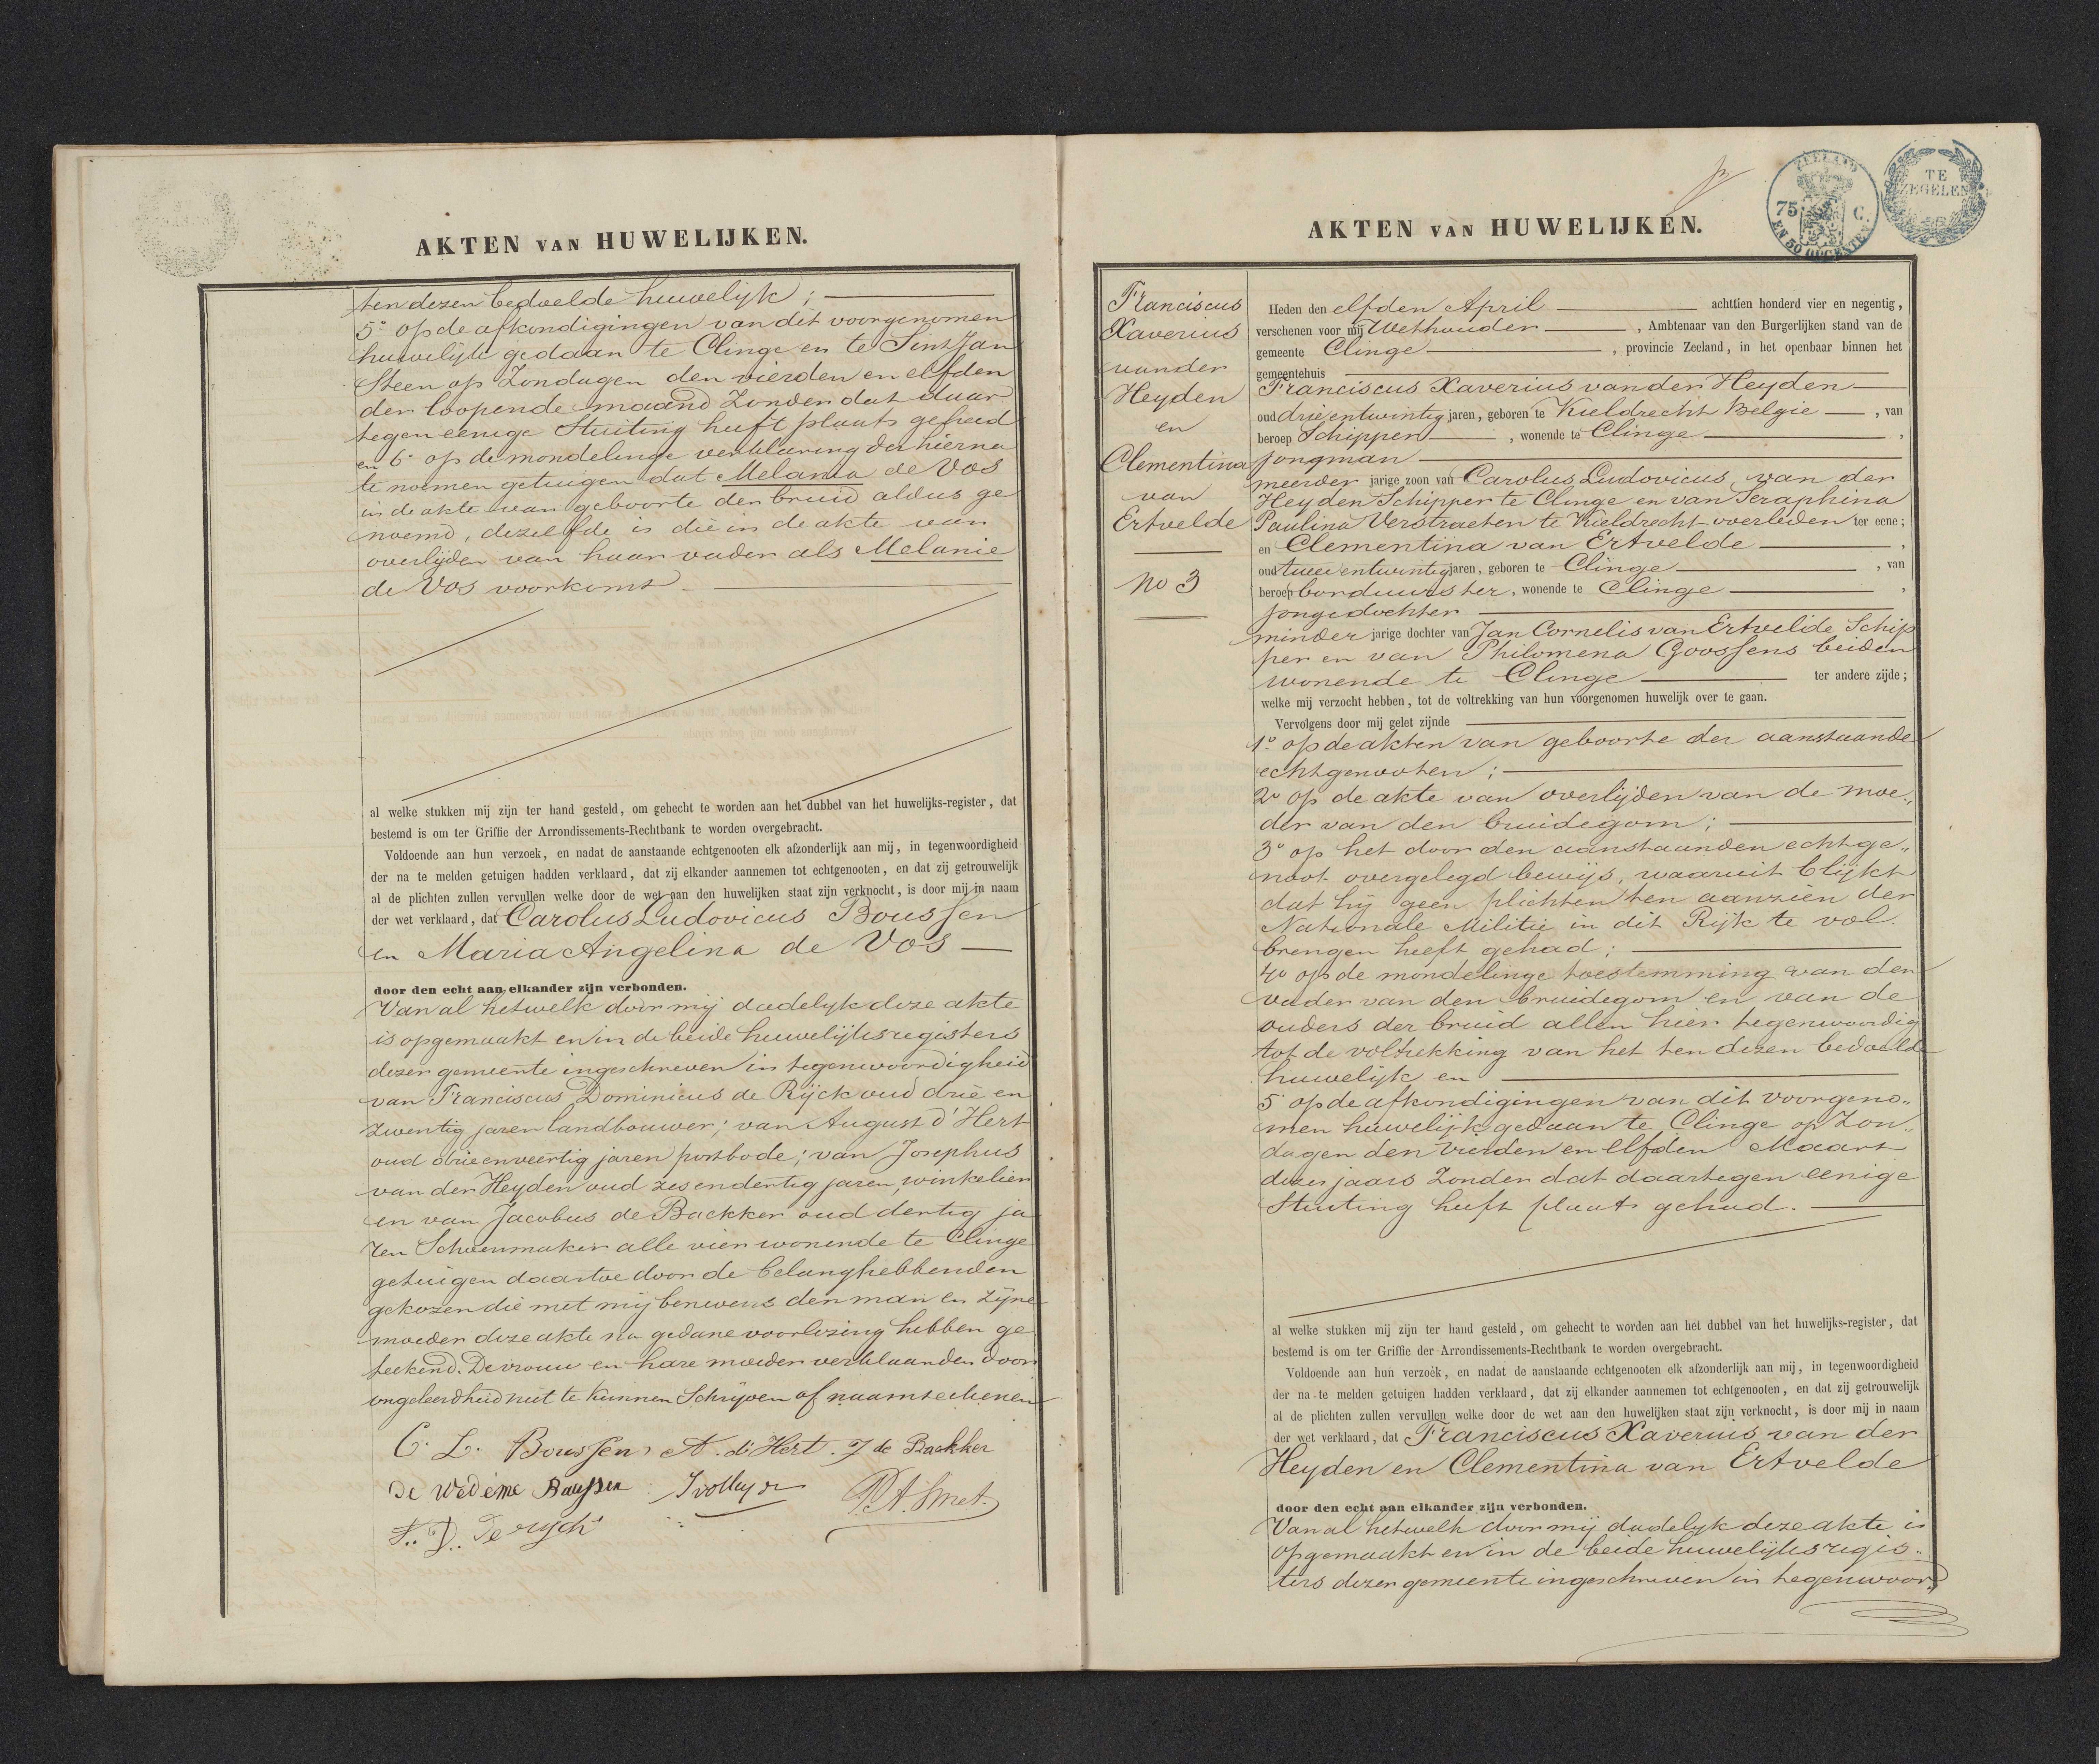 AKTEN VAN HUWELIJKEN.
ten dezen bedoelde huwelijk;
5º op de afkondigingen van dit voorgenomen
huwelijk gedaan te Clinge en te Sint Jan
Steen op Zondagen den vierden en elfden
der loopende maand Zonder dat daar
tegen eenige Stuiting heeft plaats gehad
en 6º op de mondelinge verklaring der hierna
te noemen getuigen dat Melania de Vos
in de akte van geboorte der bruid aldus ge
noemd, dezelfde is die in de akte van
overlijden van haar vader als Melanie
de Vos voorkomt
al welke stukken mij zijn ter hand gesteld, om gehecht te worden aan het dubbel van het huwelijks-register, dat
bestemd is om ter Griffie der Arrondissements-Rechtbank te worden overgebracht.
Voldoende aan hun verzoek, en nadat de aanstaande echtgenooten elk afzonderlijk aan mij, in tegenwoordigheid
der na te melden getuigen hadden verklaard, dat zij elkander aannemen tot echtgenooten, en dat zij getrouwelijk
al de plichten zullen vervullen welke door de wet aan den huwelijken staat zijn verknocht, is door mij in naam
der wet verklaard, dat Carolus Ludovicus Boussen
en Maria Angelina de Vos
door den echt aan elkander zijn verbonden.
Van al hetwelk door mij dadelijk deze akte
is opgemaakt en in de beide huwelijksregisters
dezer gemeente ingeschreven in tegenwoordigheid
van Franciscus Dominicus de Rijck oud drie en
zwentig jaren landbouwer; van August d'Hert
oud drieenveertig jaren postbode; van Josephus
van der Heyden oud zesendertig jaren, winkelier
en van Jacobus de Backker oud dertig ja
ren Schoenmaker alle vier wonende te Clinge
getuigen daartoe door de belanghebbenden
gekozen die met mij benevens den man en zijne
moeder deze akte na gedane voorlezing hebben ge
teekend. De vrouw en hare moeder verklaarden door
ongeleerdheid niet te kunnen Schrijven of naamteekenen
C. L. Boussen A. d'Hert. J de Backker
De Wed eme Baussen J vdHeyden P.A. Smet.
F.. D.. De rijck
AKTEN VAN HUWELIJKEN.
ZEELAND
75 C.
EN 50 OPCENTEN
TE
ZEGELEN
Franciscus
Xaverius
van der
Heyden
en
Clementina
van
Ertvelde
no 3
Heden den elfden April achttien honderd vier en negentig,
verschenen voor mij Wethouder, Ambtenaar van den Burgerlijken stand van de
gemeente Clinge, provincie Zeeland, in het openbaar binnen het
gemeentehuis
Franciscus Xaverius van der Heyden
oud drie en twintig jaren, geboren te Kieldrecht Belgie, van
beroep Schipper, wonende te Clinge,
jongman
meerder jarige zoon van Carolus Ludovicus van der
Heyden Schipper te Clinge en van Seraphina
Paulina Verstraeten te Kieldrecht overleden ter eene;
en Clementina van Ertvelde,
oud twee en twintig jaren, geboren te Clinge, van
beroep borduurster, wonende te Clinge,
jongedochter
minder jarige dochter van Jan Cornelis van Ertvelde Schip
per en van Philomena Goossens beiden
wonende te Clinge ter andere zijde;
welke mij verzocht hebben, tot de voltrekking van hun voorgenomen huwelijk over te gaan.
Vervolgens door mij gelet zijnde
1º op de akten van geboorte der aanstaande
echtgenooten;
2º op de akte van overlijden van de moe„
der van den bruidegom;
3º op het door den aanstaanden echtge„
noot overgelegd bewijs, waaruit blijkt
dat hij geen plichten ten aanzien der
Nationale Militie in dit Rijk te vol
brengen heeft gehad;
4º op de mondelinge toestemming van den
vader van den bruidegom en van de
ouders der bruid allen hier tegenwoordig
tot de voltrekking van het ten dezen bedoelde
huwelijk en
5º op de afkondigingen van dit voorgeno„
men huwelijk gedaan te Clinge op Zon„
dagen den vierden en elfden Maart
dezer jaars Zonder dat daartegen eenige
Stuiting heeft plaats gehad.
al welke stukken mij zijn ter hand gesteld, om gehecht te worden aan het dubbel van het huwelijks-register, dat
bestemd is om ter Griffie der Arrondissements-Rechtbank te worden overgebracht.
Voldoende aan hun verzoek, en nadat de aanstaande echtgenooten elk afzonderlijk aan mij, in tegenwoordigheid
der na te melden getuigen hadden verklaard, dat zij elkander aannemen tot echtgenooten, en dat zij getrouwelijk
al de plichten zullen vervullen welke door de wet aan den huwelijken staat zijn verknocht, is door mij in naam
der wet verklaard, dat Franciscus Xaverius van der
Heyden en Clementina van Ertvelde
door den echt aan elkander zijn verbonden.
Van al hetwelk door mij dadelijk deze akte is
opgemaakt en in de beide huwelijksregis„
ters dezer gemeente ingeschreven in tegenwoor„